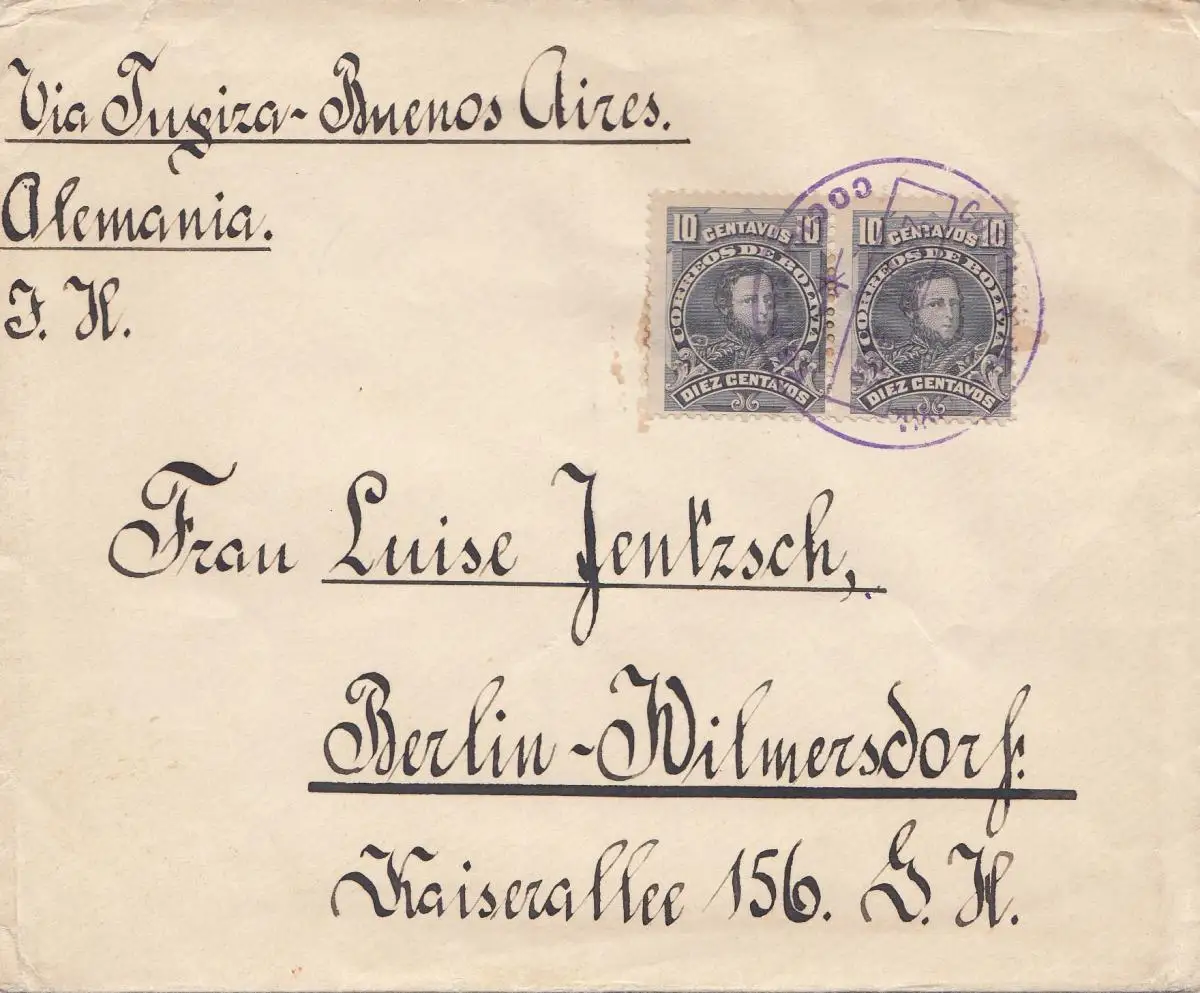 Via Tupiza - Buenos Aires.
Alemania.
F. H.
10 CENTAVOS 10
CORREOS DE BOLIVIA
DIEZ CENTAVOS
10 CENTAVOS 10
CORREOS DE BOLIVIA
DIEZ CENTAVOS
Frau Luise Jentzsch,
Berlin - Wilmersdorf.
Kaiserallee 156. G. H.